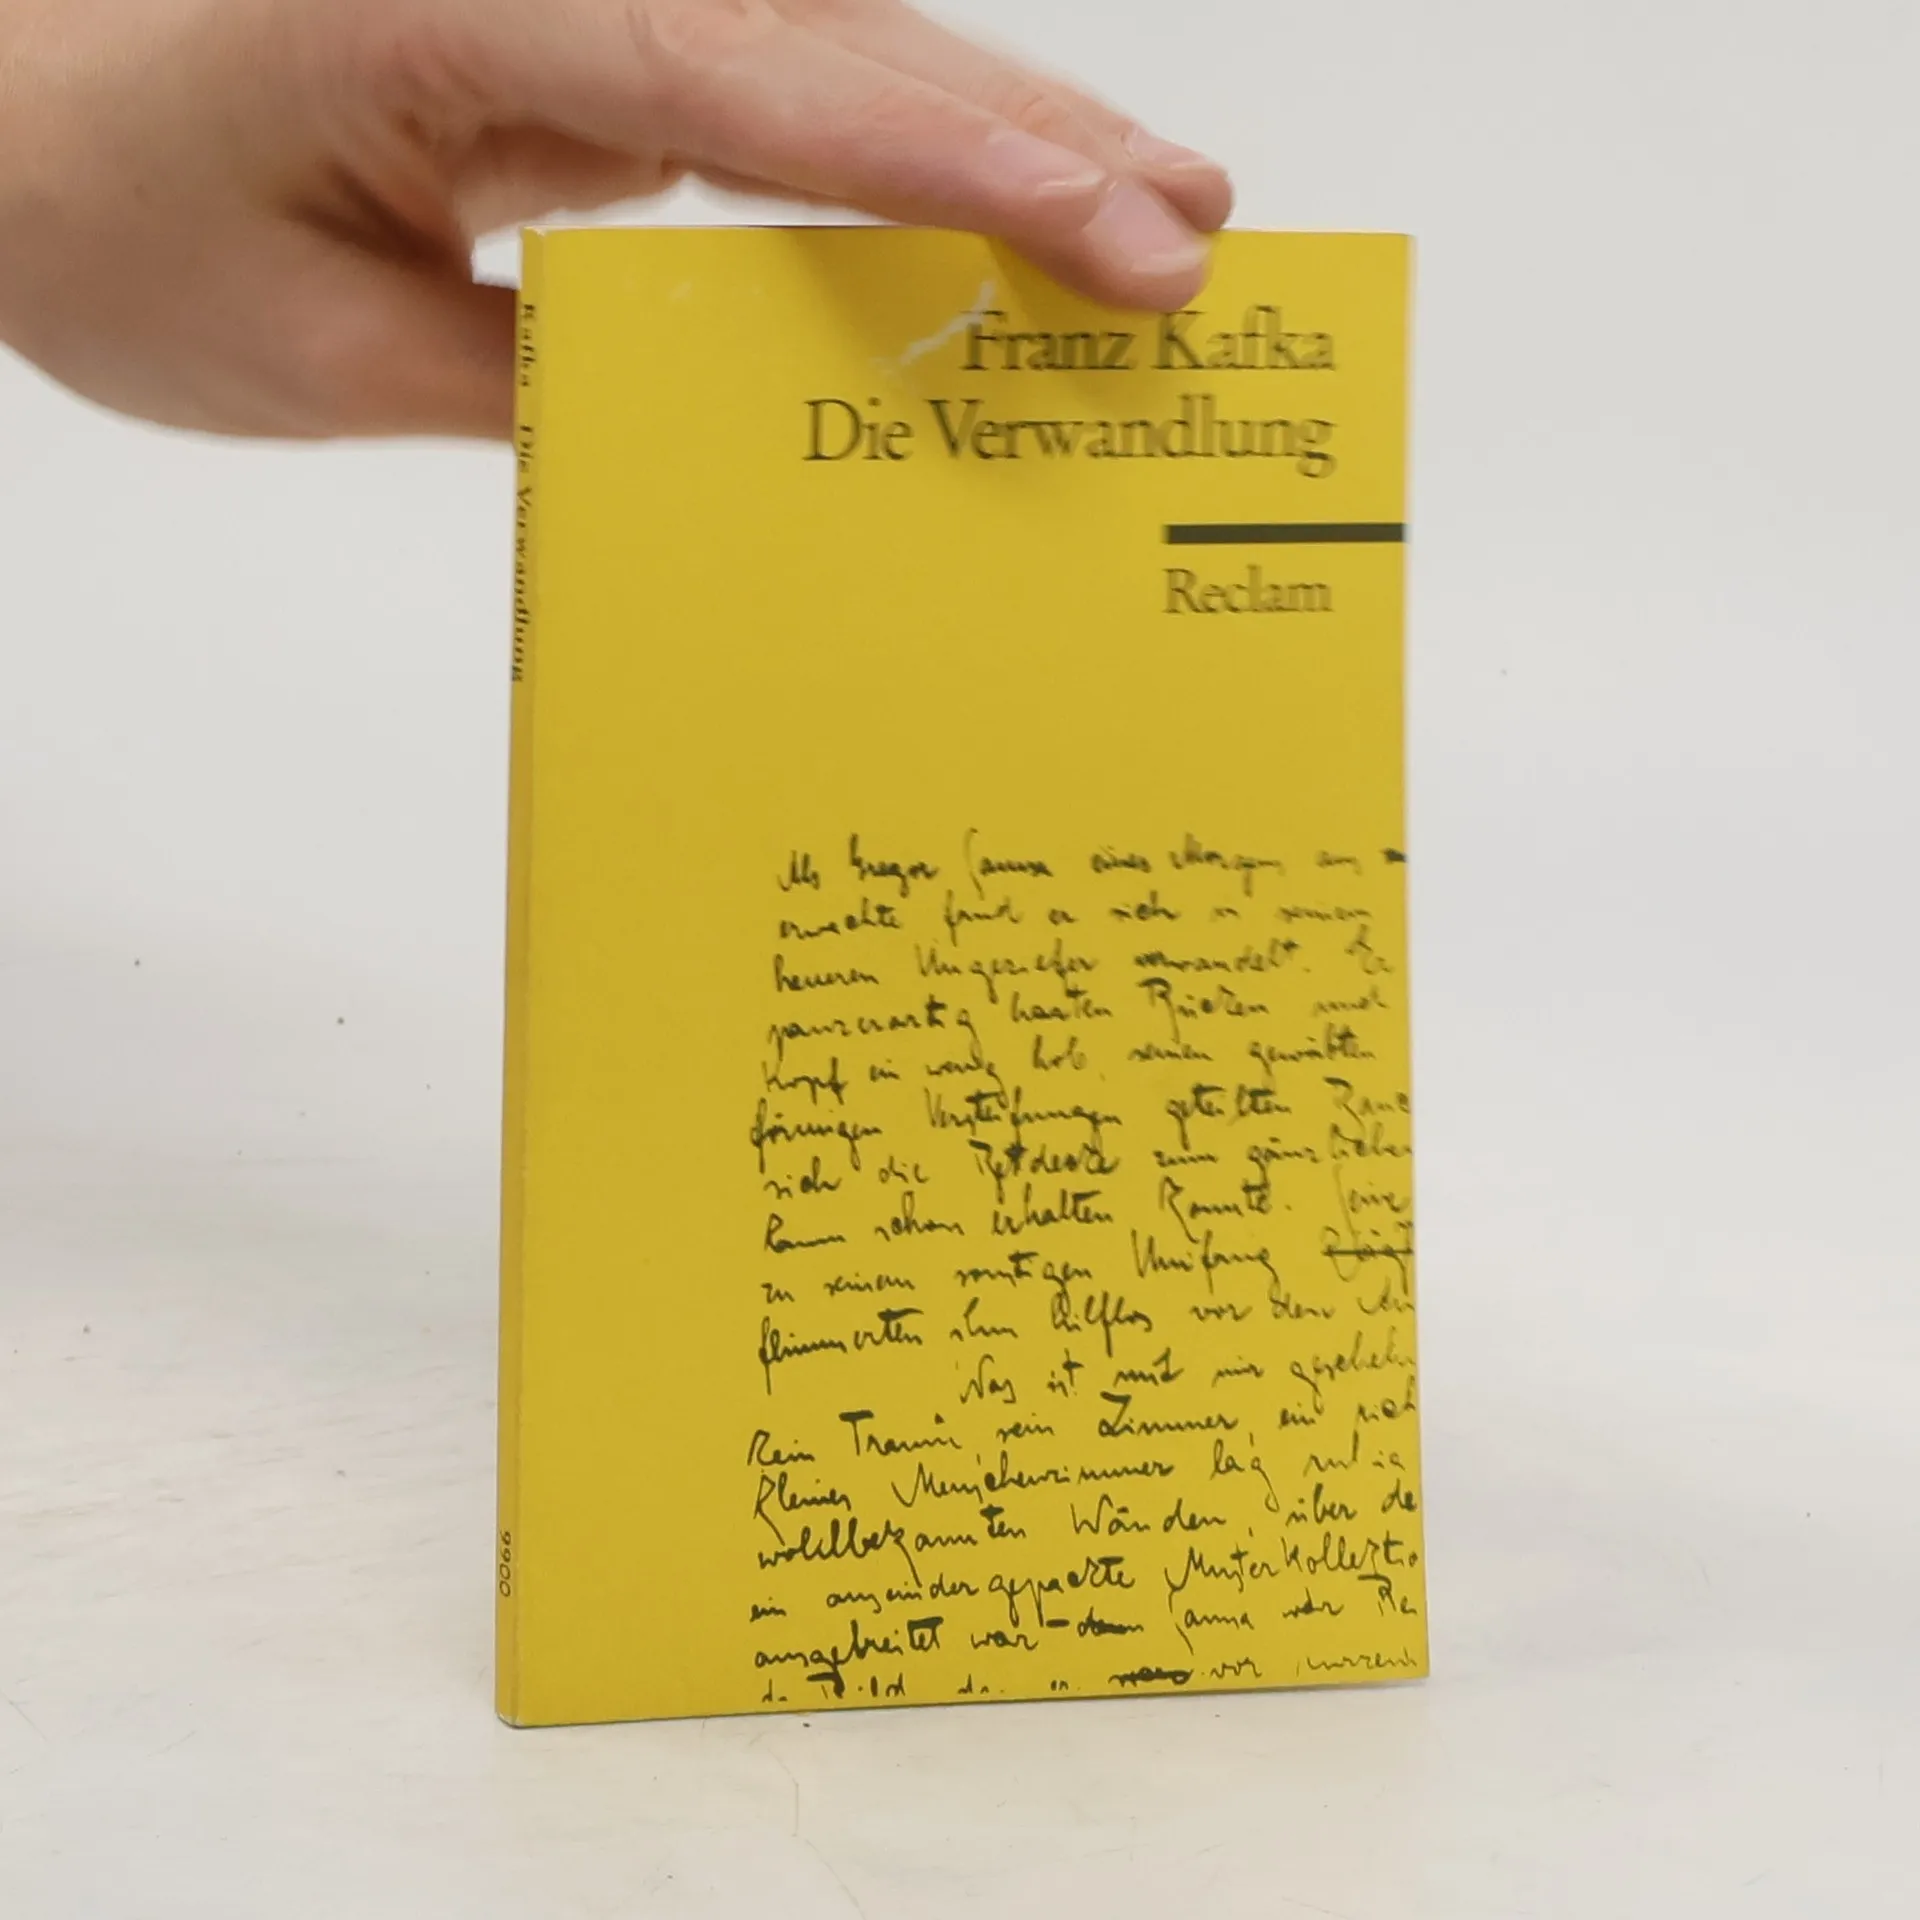 Franz Kafka
Die Verwandlung
Reclam
Kafka Die Verwandlung
9900
Als Gregor Samsa eines Morgens aus
erwachte fand er sich in seinem
heueren Ungeziefer verwandelt. Er
panzerartig harten Rücken und
Kopf ein wenig hob, seinen gewölbten
förmigen Versteifungen geteilten
sich die Bettdecke zum gänzlichen
kaum schon erhalten konnte. Seine
zu seinem sonstigen Umfang
flimmerten ihm hilflos vor den
Was ist mit mir geschehen
kein Traum, sein Zimmer, ein
kleines Menschenzimmer lag ruhig
wohlbekannten Wänden, über de
ein auseinandergepackte Musterkollektio
ausgebreitet war – Samsa war Rei
vor kurzem